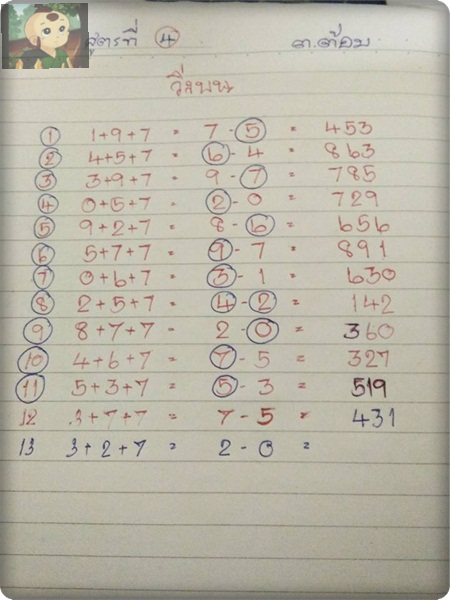 สูตรที่ 4 ต.ต้อม
วิ่งบน
1 1+9+7 = 7-5 = 453
2 4+5+7 = 6-4 = 863
3 3+9+7 = 9-7 = 785
4 0+5+7 = 2-0 = 729
5 9+2+7 = 8-6 = 656
6 5+7+7 = 9-7 = 891
7 0+6+7 = 3-1 = 630
8 2+5+7 = 4-2 = 142
9 8+7+7 = 2-0 = 360
10 4+6+7 = 7-5 = 327
11 5+3+7 = 5-3 = 519
12 3+7+7 = 7-5 = 431
13 3+2+7 = 2-0 =